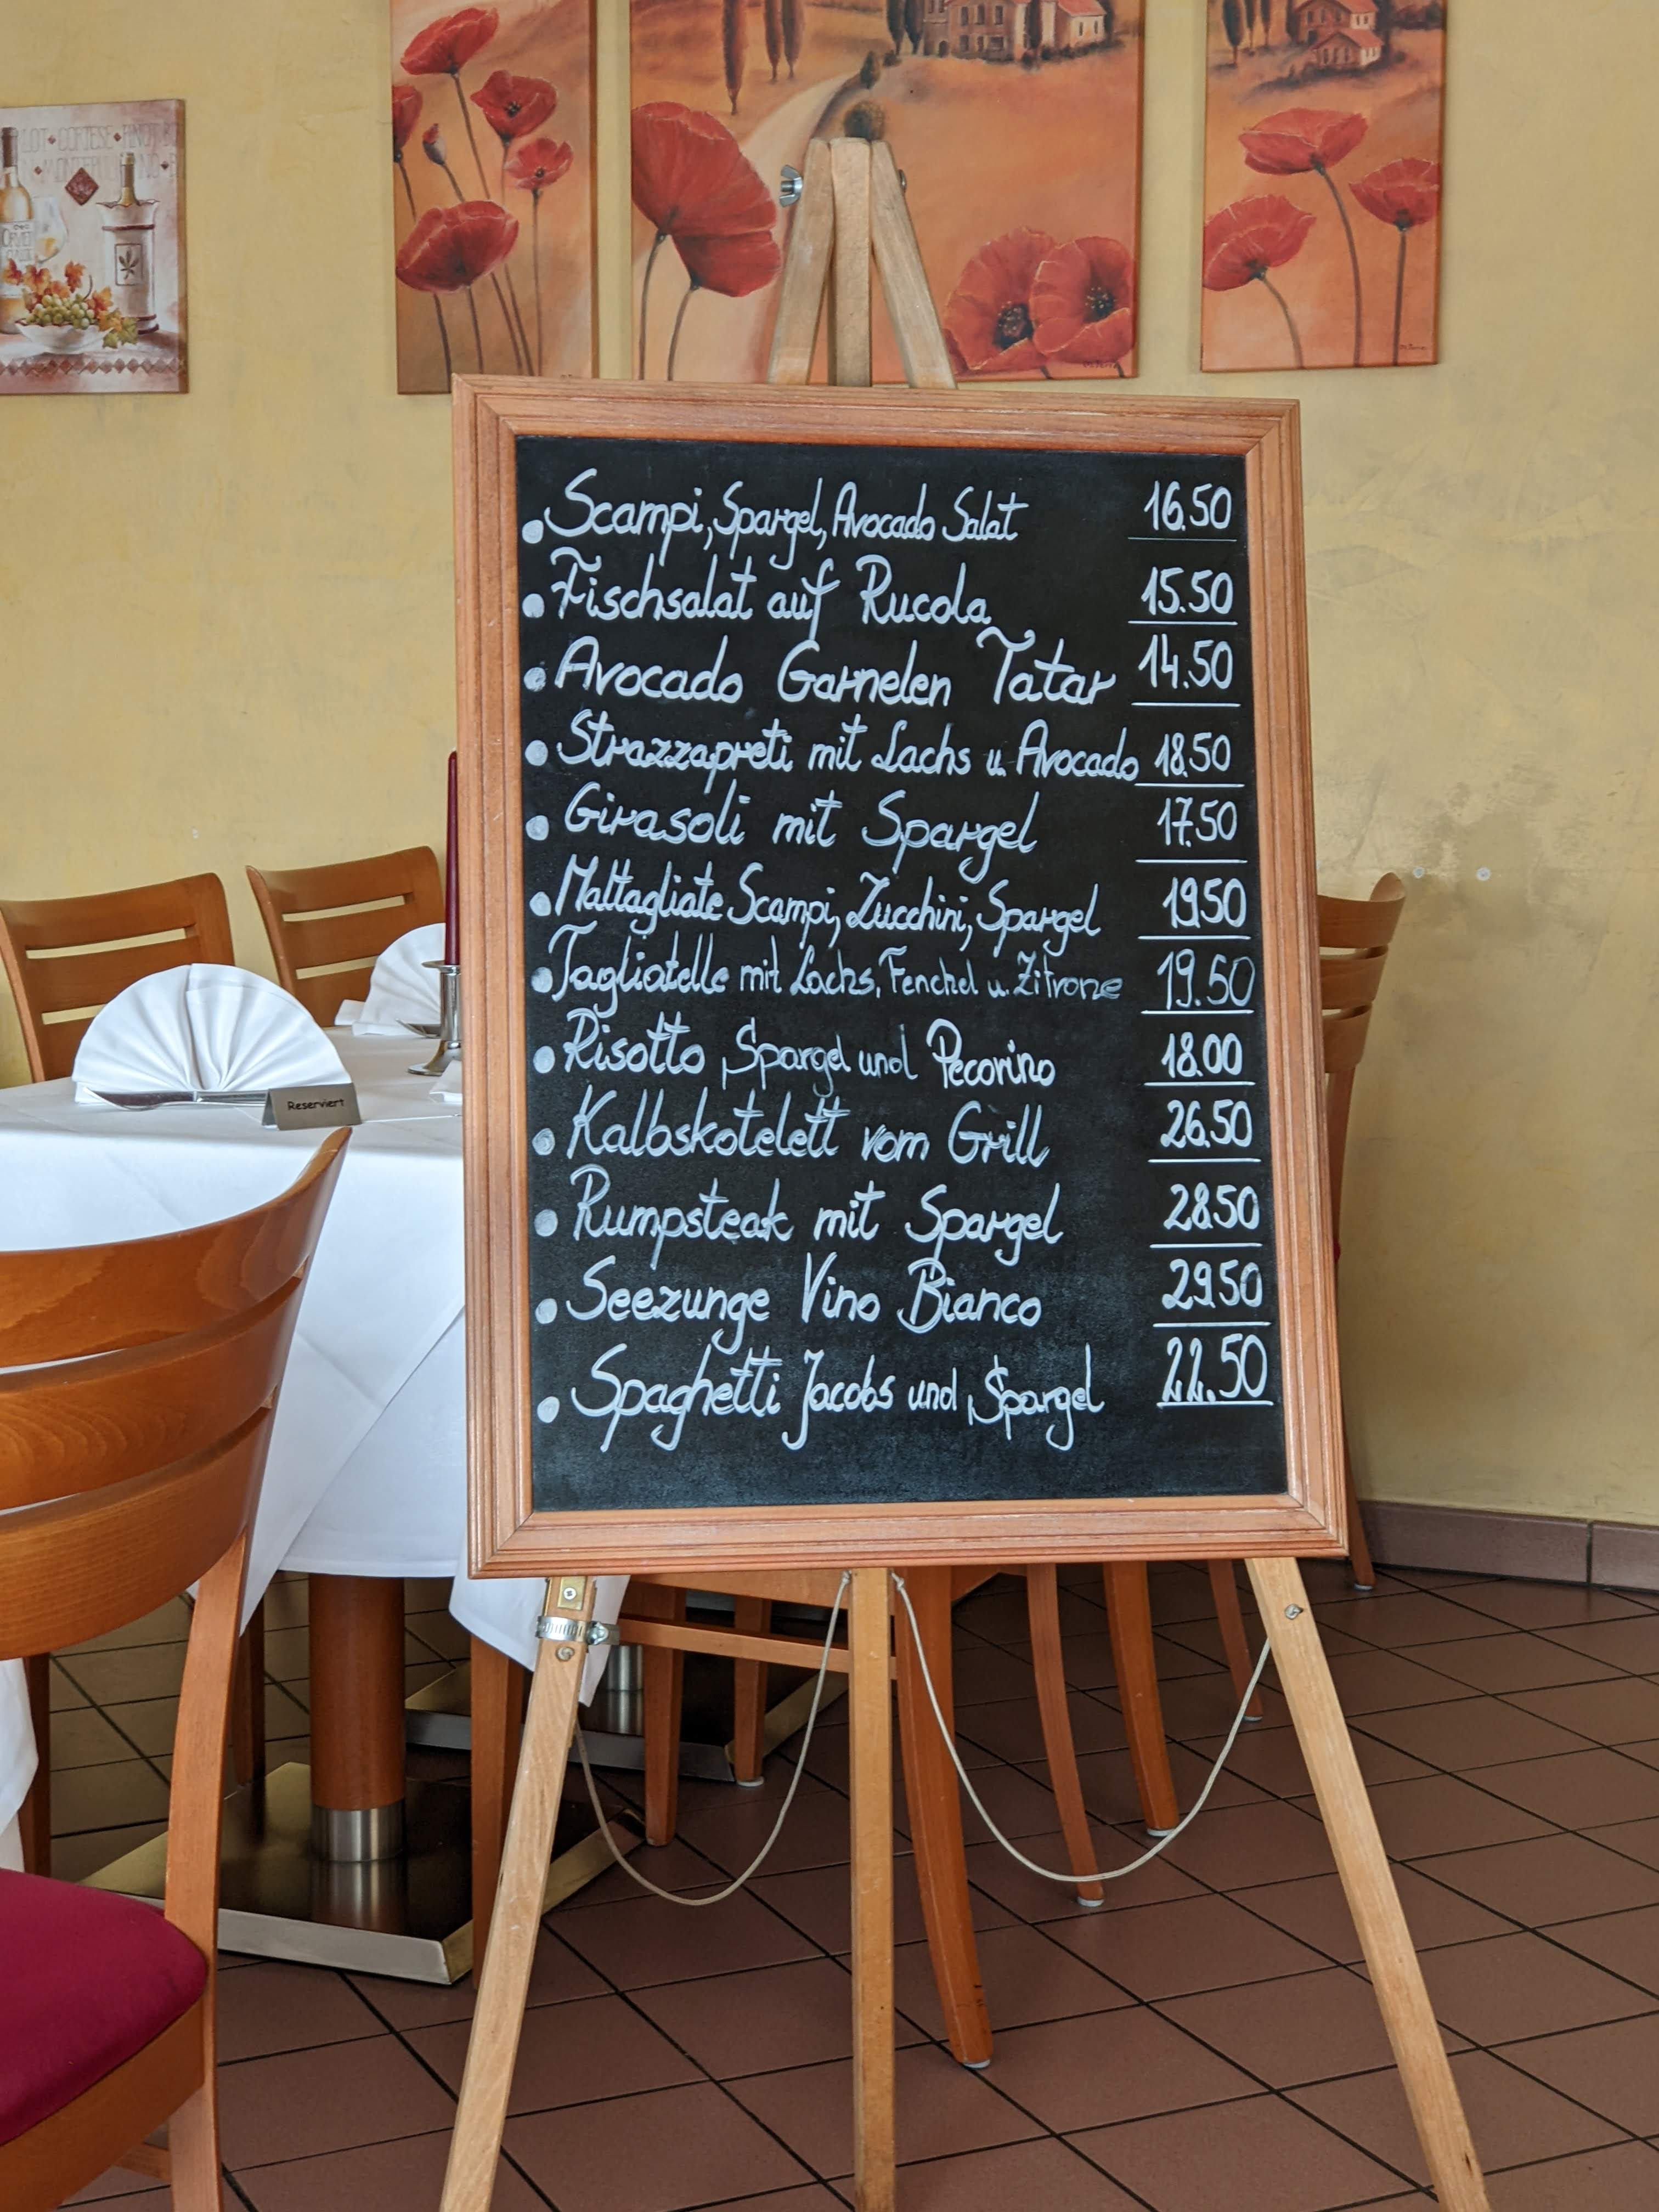 Scampi, Spargel, Avocado Salat 16.50
Fischsalat auf Rucola 15.50
Avocado Garnelen Tatar 14.50
Strazzapreti mit Lachs u. Avocado 18.50
Girasoli mit Spargel 17.50
Maltagliate Scampi, Zucchini, Spargel 19.50
Tagliatelle mit Lachs, Fenchel u. Zitrone 19.50
Risotto, Spargel und Pecorino 18.00
Kalbskotelett vom Grill 26.50
Rumpsteak mit Spargel 28.50
Seezunge Vino Bianco 29.50
Spaghetti Jacobs und Spargel 22.50
Reserviert